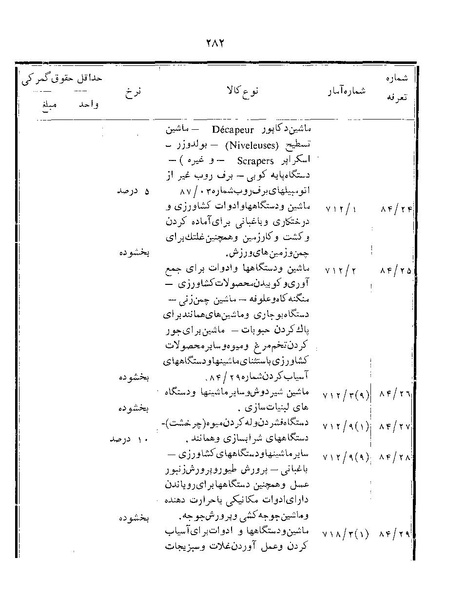 ۲۸۲
شماره تعرفه شماره آمار نوع کالا نرخ حداقل حقوق گمرکی
واحد مبلغ
ماشین دکاپور Décapeur – ماشین
تسطیح (Niveleuses) – بولدوزر –
اسکراپر Scrapers – و غیره ) –
دستگاه پایه کوبی – برف روب غیر از
اتومبیلهای برف روب شماره ۸۷/۰۳ ۵ درصد
۸۴/۲۴ ۷۱۲/۱ ماشین و دستگاهها و ادوات کشاورزی و
درختکاری و باغبانی برای آماده کردن
و کشت و کار زمین و همچنین غلتک برای
چمن و زمین های ورزش. بخشوده
۸۴/۲۵ ۷۱۲/۲ ماشین و دستگاهها و ادوات برای جمع
آوری و کوبیدن محصولات کشاورزی –
منگنه کاه و علوفه – ماشین چمن زنی –
دستگاه بوجاری و ماشین های همانند برای
پاک کردن حبوبات – ماشین برای جور
کردن تخم مرغ و میوه و سایر محصولات
کشاورزی باستثنای ماشینها و دستگاههای
آسیاب کردن شماره ۸۴/۲۹. بخشوده
۸۴/۲۶ ۷۱۲/۳(۹) ماشین شیردوش و سایر ماشینها و دستگاه
های لبنیات سازی. بخشوده
۸۴/۲۷ ۷۱۲/۹(۱) دستگاه فشردن و له کردن میوه (چرخشت)-
دستگاههای شرابسازی و همانند. ۱۰ درصد
۸۴/۲۸ ۷۱۲/۹(۹) سایر ماشینها و دستگاههای کشاورزی –
باغبانی – پرورش طیور و پرورش زنبور
عسل و همچنین دستگاهها برای رویاندن
دارای ادوات مکانیکی یا حرارت دهنده
و ماشین جوجه کشی و پرورش جوجه. بخشوده
۸۴/۲۹ ۷۱۸/۳(۱) ماشین و دستگاهها و ادوات برای آسیاب
کردن و عمل آوردن غلات و سبزیجات